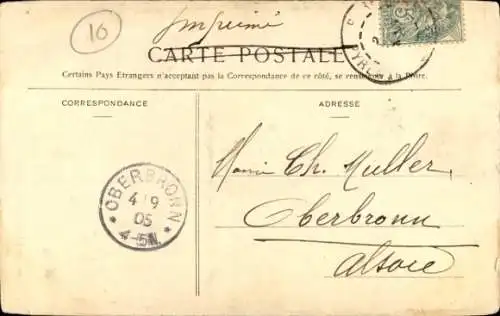 16
Imprimé
CARTE POSTALE
Certains Pays Etrangers n'acceptant pas la Correspondance de ce côté, se renseigner à la Poste.
CORRESPONDANCE
ADRESSE
Ch. Muller,
Oberbronn
Alsace
OBERBRONN
4 9
05
4-5N.